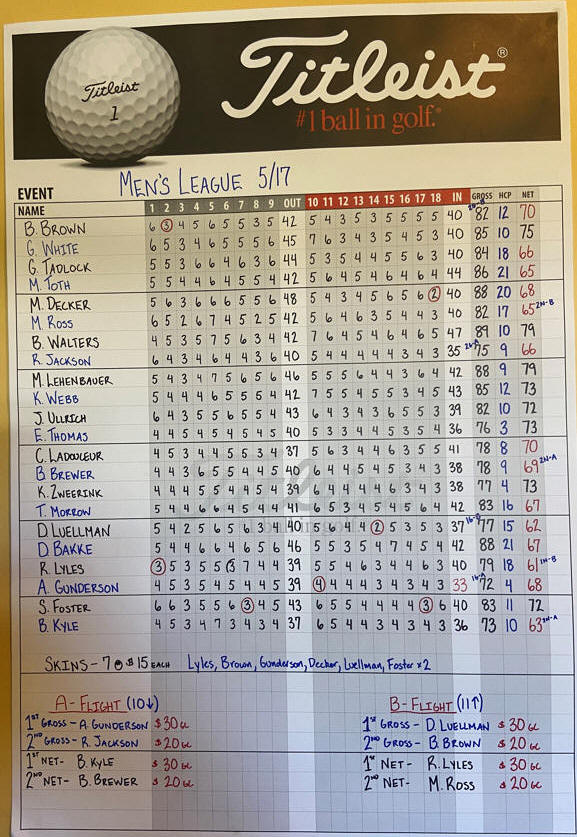 Titleist
1
Titleist®
#1 ball in golf.®
EVENT MEN'S LEAGUE 5/17
NAME 1 2 3 4 5 6 7 8 9 OUT 10 11 12 13 14 15 16 17 18 IN GROSS HCP NET
B. BROWN 6 3 4 5 6 5 5 3 5 42 5 4 3 5 3 5 5 5 5 40 82 12 70
G. WHITE 6 5 3 4 6 5 5 6 5 45 7 6 3 4 3 5 4 5 3 40 85 10 75
G. TADLOCK 5 5 3 6 6 4 6 3 6 44 5 3 5 4 4 5 5 6 3 40 84 18 66
M. TOTH 5 5 4 4 6 5 4 5 4 42 5 6 4 5 4 6 4 6 4 44 86 21 65
M. DECKER 5 6 3 6 6 6 5 5 6 48 5 4 3 4 5 6 5 6 2 40 88 20 68
M. ROSS 6 5 2 6 7 4 5 2 5 42 5 6 4 6 3 5 4 4 3 40 82 17 65 2N-B
B. WALTERS 4 5 3 5 7 5 6 3 4 42 7 6 4 5 4 6 4 6 5 47 89 10 79
R. JACKSON 6 4 3 4 6 4 4 3 6 40 5 4 4 4 4 4 3 4 3 35 75 9 66
M. LEHENBAUER 5 4 3 4 7 5 6 5 6 46 5 5 5 6 4 4 3 6 4 42 88 9 79
K. WEBB 5 4 4 4 6 5 5 5 4 42 7 5 5 4 5 4 4 5 4 43 85 12 73
J. ULLRICH 6 4 3 5 5 6 5 5 4 43 6 4 3 4 3 6 5 5 3 39 82 10 72
E. THOMAS 4 4 5 4 5 4 5 4 5 40 5 3 3 4 4 5 4 5 3 36 76 3 73
C. LADOUCEUR 4 5 3 4 4 5 5 3 4 37 5 6 3 4 4 6 3 5 5 41 78 8 70
B. BREWER 4 4 3 6 5 5 4 5 4 40 6 4 4 5 4 5 3 4 3 38 78 9 69 2N-A
K. ZWEERINK 4 4 4 5 5 4 5 4 4 39 6 5 4 4 4 6 3 4 3 38 77 4 73
T. MORROW 4 5 4 4 6 6 4 4 4 41 5 5 4 4 4 5 5 6 4 42 83 16 67
D LUELLMAN 5 4 2 5 6 5 6 3 4 40 5 6 4 4 2 5 3 5 3 37 77 15 62
D. BAKKE 5 4 4 6 6 4 6 5 6 46 5 5 3 5 4 7 4 5 4 42 88 21 67
R. LYLES 3 5 4 3 5 5 3 7 4 4 39 6 5 5 4 3 4 4 6 3 40 79 18 61 1N-B
A. GUNDERSON 4 5 3 5 4 5 4 5 4 39 4 4 4 4 3 4 3 4 3 33 72 4 68
S. FOSTER 6 6 3 5 5 6 3 4 5 43 6 5 5 4 4 4 3 3 6 40 83 11 72
B. KYLE 4 5 3 4 7 3 4 3 4 37 6 5 4 4 3 4 3 4 3 36 73 10 63 1N-A
SKINS - 7 @ $15 EACH Lyles, Brown, Gunderson, Decker, Luellman, Foster x2
A - FLIGHT (10↓) B - FLIGHT (11↑)
1ST GROSS - A. GUNDERSON $30 GC 1ST GROSS - D. LUELLMAN $30 GC
2ND GROSS - R. JACKSON $20 GC 2ND GROSS - B. BROWN $20 GC
1ST NET - B. KYLE $30 GC 1ST NET - R. LYLES $30 GC
2ND NET - B. BREWER $20 GC 2ND NET - M. ROSS $20 GC